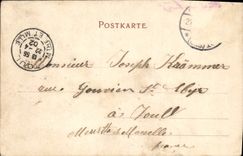 POSTKARTE.
Monsieur Joseph Krämmer
rue Gouvion St Cyr
à Toul
Meurthe et Moselle
France